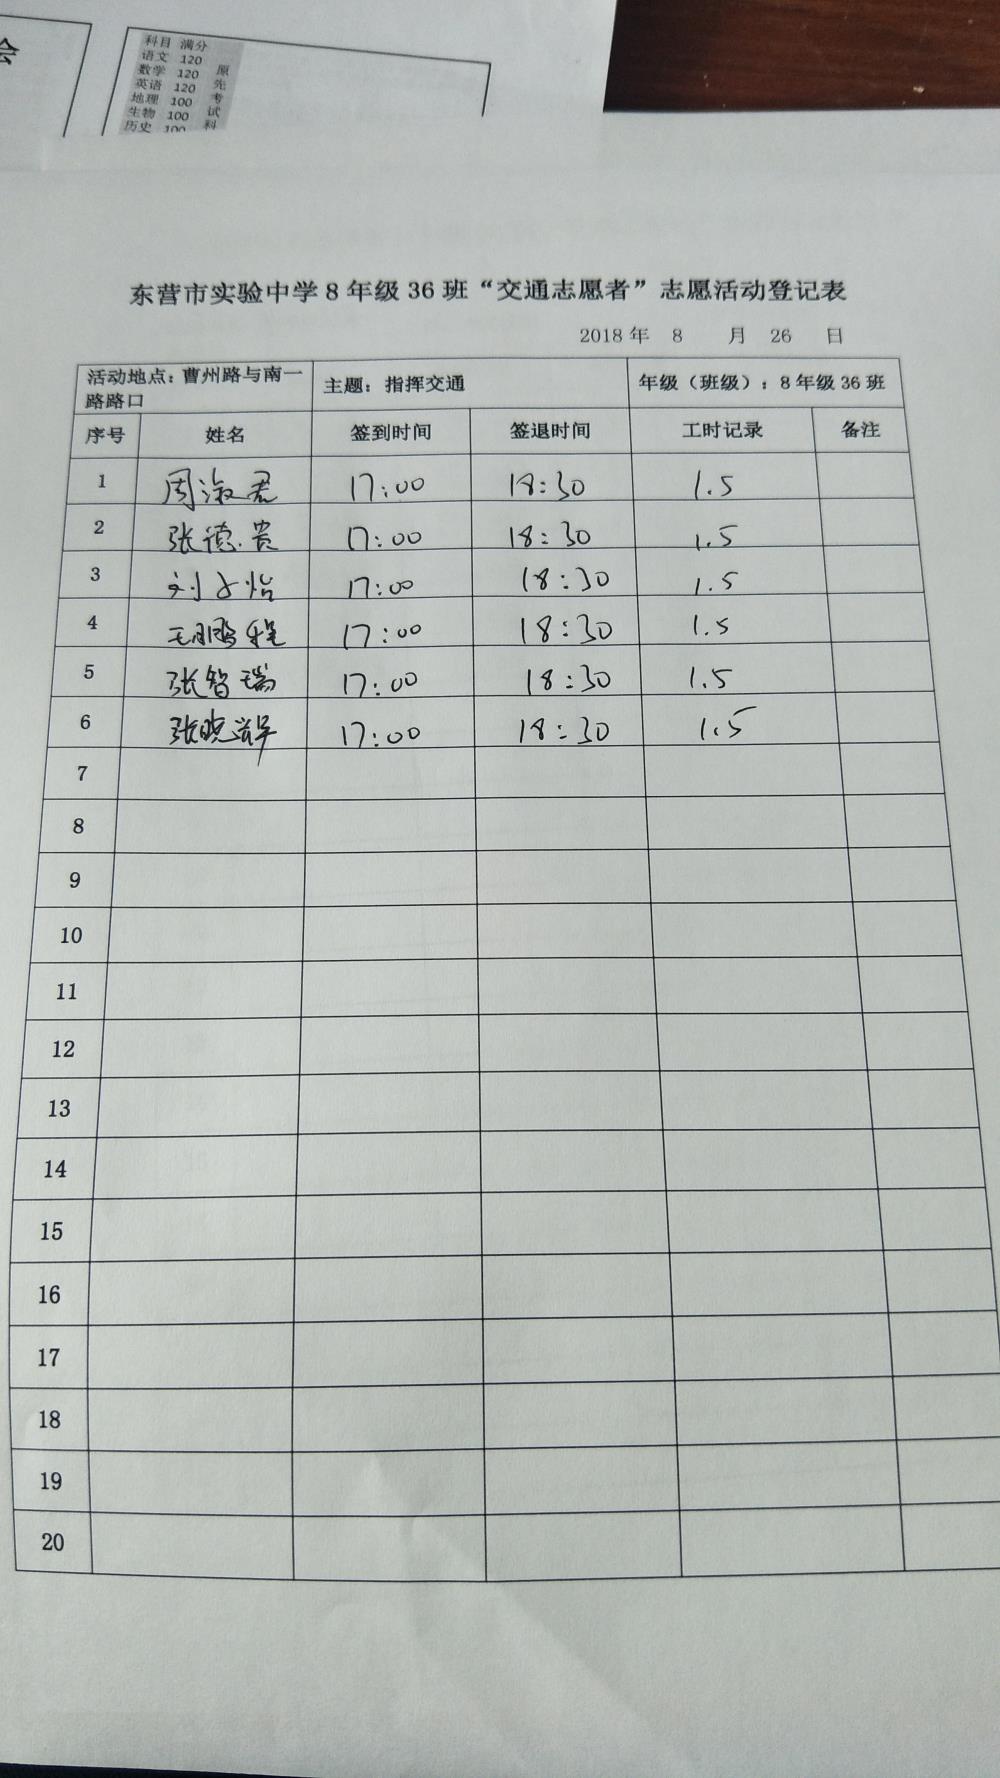 会
科目 满分
语文 120
数学 120 原
英语 120 先
地理 100 考
生物 100 试
历史 100 科
东营市实验中学8年级36班“交通志愿者”志愿活动登记表
2018年 8 月 26 日
活动地点：曹州路与南一路路口 主题：指挥交通 年级（班级）：8年级36班
序号 姓名 签到时间 签退时间 工时记录 备注
1 周淑君 17:00 18:30 1.5
2 张德贵 17:00 18:30 1.5
3 刘子怡 17:00 18:30 1.5
4 王鹏程 17:00 18:30 1.5
5 张智瑞 17:00 18:30 1.5
6 张晓 17:00 18:30 1.5
7
8
9
10
11
12
13
14
15
16
17
18
19
20